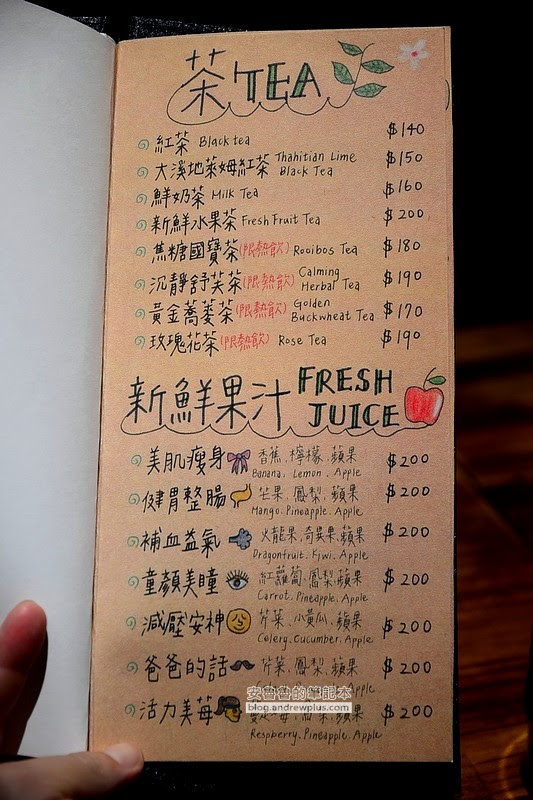 茶 TEA
紅茶 Black tea $140
大溪地萊姆紅茶 Thahitian Lime Black Tea $150
鮮奶茶 Milk Tea $160
新鮮水果茶 Fresh Fruit Tea $200
焦糖國寶茶(限熱飲) Rooibos Tea $180
沉靜舒芙茶(限熱飲) Calming Herbal Tea $190
黃金蕎麥茶(限熱飲) Golden Buckwheat Tea $170
玫瑰花茶(限熱飲) Rose Tea $190
新鮮果汁 FRESH JUICE
美肌瘦身 香蕉、檸檬、蘋果 $200
Banana, Lemon, Apple
健胃整腸 芒果、鳳梨、蘋果 $200
Mango, Pineapple, Apple
補血益氣 火龍果、奇異果、蘋果 $200
Dragonfruit, Kiwi, Apple
童顏美瞳 紅蘿蔔、鳳梨、蘋果 $200
Carrot, Pineapple, Apple
減壓安神 芹菜、小黃瓜、蘋果 $200
Celery, Cucumber, Apple
爸爸的話 芹菜、鳳梨、蘋果 $200
Apple
安魯魯的筆記本
blog.andrewplus.com
活力美莓 蘋果 $200
Respberry, Pineapple, Apple